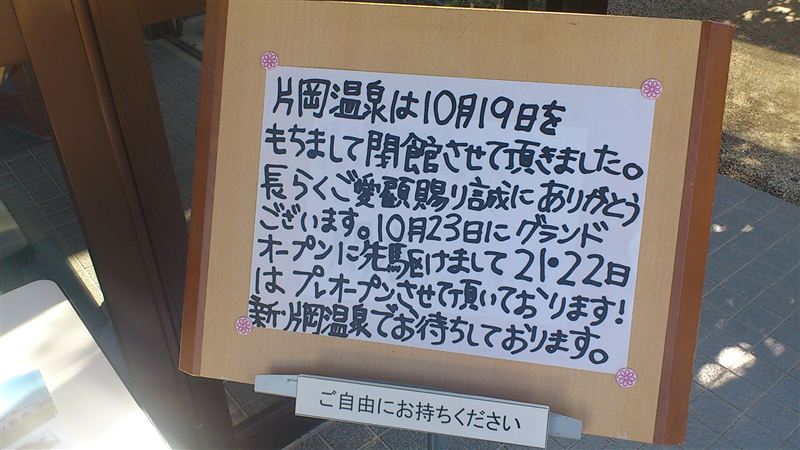 片岡温泉は10月19日を
もちまして閉館させて頂きました。
長らくご愛顧賜り誠にありがとう
ございます。10月23日にグランド
オープンに先駆けまして21・22日
はプレオープンさせて頂いております!
新・片岡温泉でお待ちしております。
ご自由にお持ちください